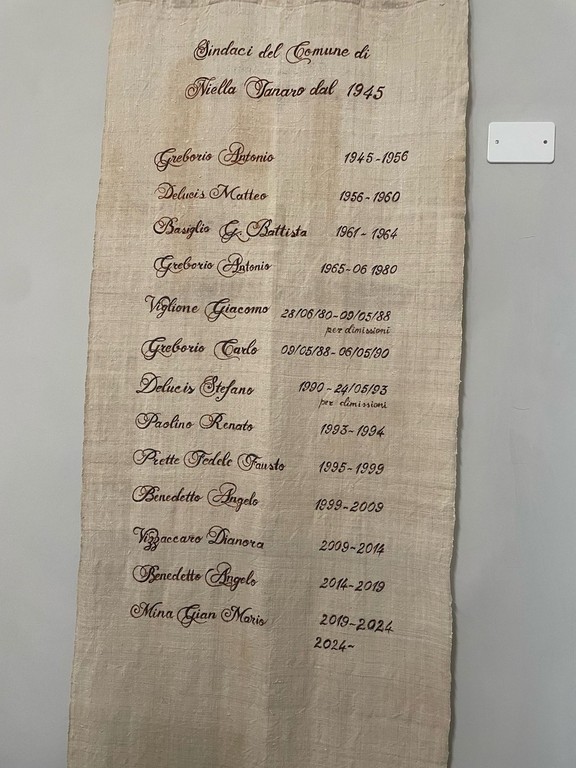 Sindaci del Comune di
Niella Tanaro dal 1945
Greborio Antonio 1945-1956
Delucis Matteo 1956-1960
Basiglio G. Battista 1961-1964
Greborio Antonio 1965-06 1980
Viglione Giacomo 28/06/80-09/05/88
per dimissioni
Greborio Carlo 09/05/88-06/05/90
Delucis Stefano 1990-24/05/93
per dimissioni
Paolino Renato 1993-1994
Prette Fedele Fausto 1995-1999
Benedetto Angelo 1999-2009
Vizzaccaro Dianora 2009-2014
Benedetto Angelo 2014-2019
Mina Gian Mario 2019-2024
2024-